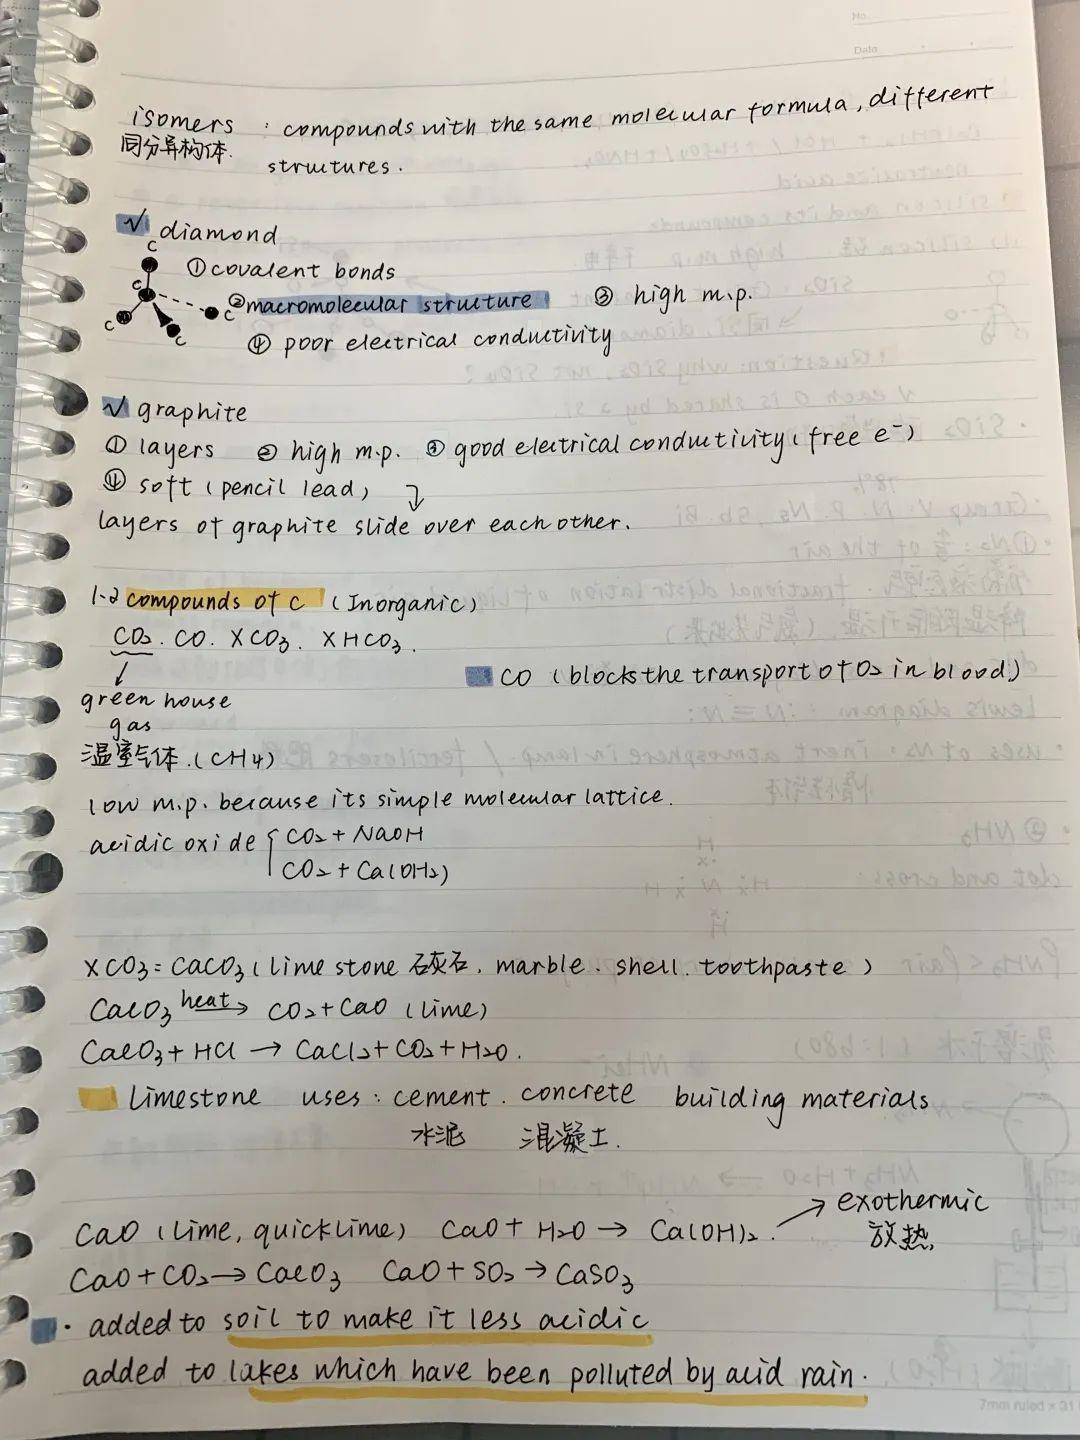 No.
Date
isomers : compounds with the same molecular formula, different
同分异构体. structures.
√ diamond
c
① covalent bonds
c
② macromolecular structure ③ high m.p.
c
c
c
④ poor electrical conductivity
√ graphite
① layers ② high m.p. ③ good electrical conductivity (free e⁻)
④ soft (pencil lead)
layers of graphite slide over each other.
1-2 compounds of C (Inorganic)
CO₂. CO. XCO₃. XHCO₃.
CO (blocks the transport of O₂ in blood)
green house
gas
温室气体. (CH4)
low m.p. because its simple molecular lattice.
acidic oxide { CO₂ + NaOH
CO₂ + Ca(OH₂)
XCO₃ = CaCO₃ (lime stone 石灰石. marble. shell. toothpaste)
CaCO₃ heat→ CO₂ + CaO (lime)
CaCO₃ + HCl → CaCl₂ + CO₂ + H₂O.
Limestone uses : cement. concrete building materials
水泥 混凝土.
CaO (lime, quicklime) CaO + H₂O → Ca(OH)₂. → exothermic
放热
CaO + CO₂ → CaCO₃ CaO + SO₂ → CaSO₃
· added to soil to make it less acidic
added to lakes which have been polluted by acid rain.
7mm ruled × 31